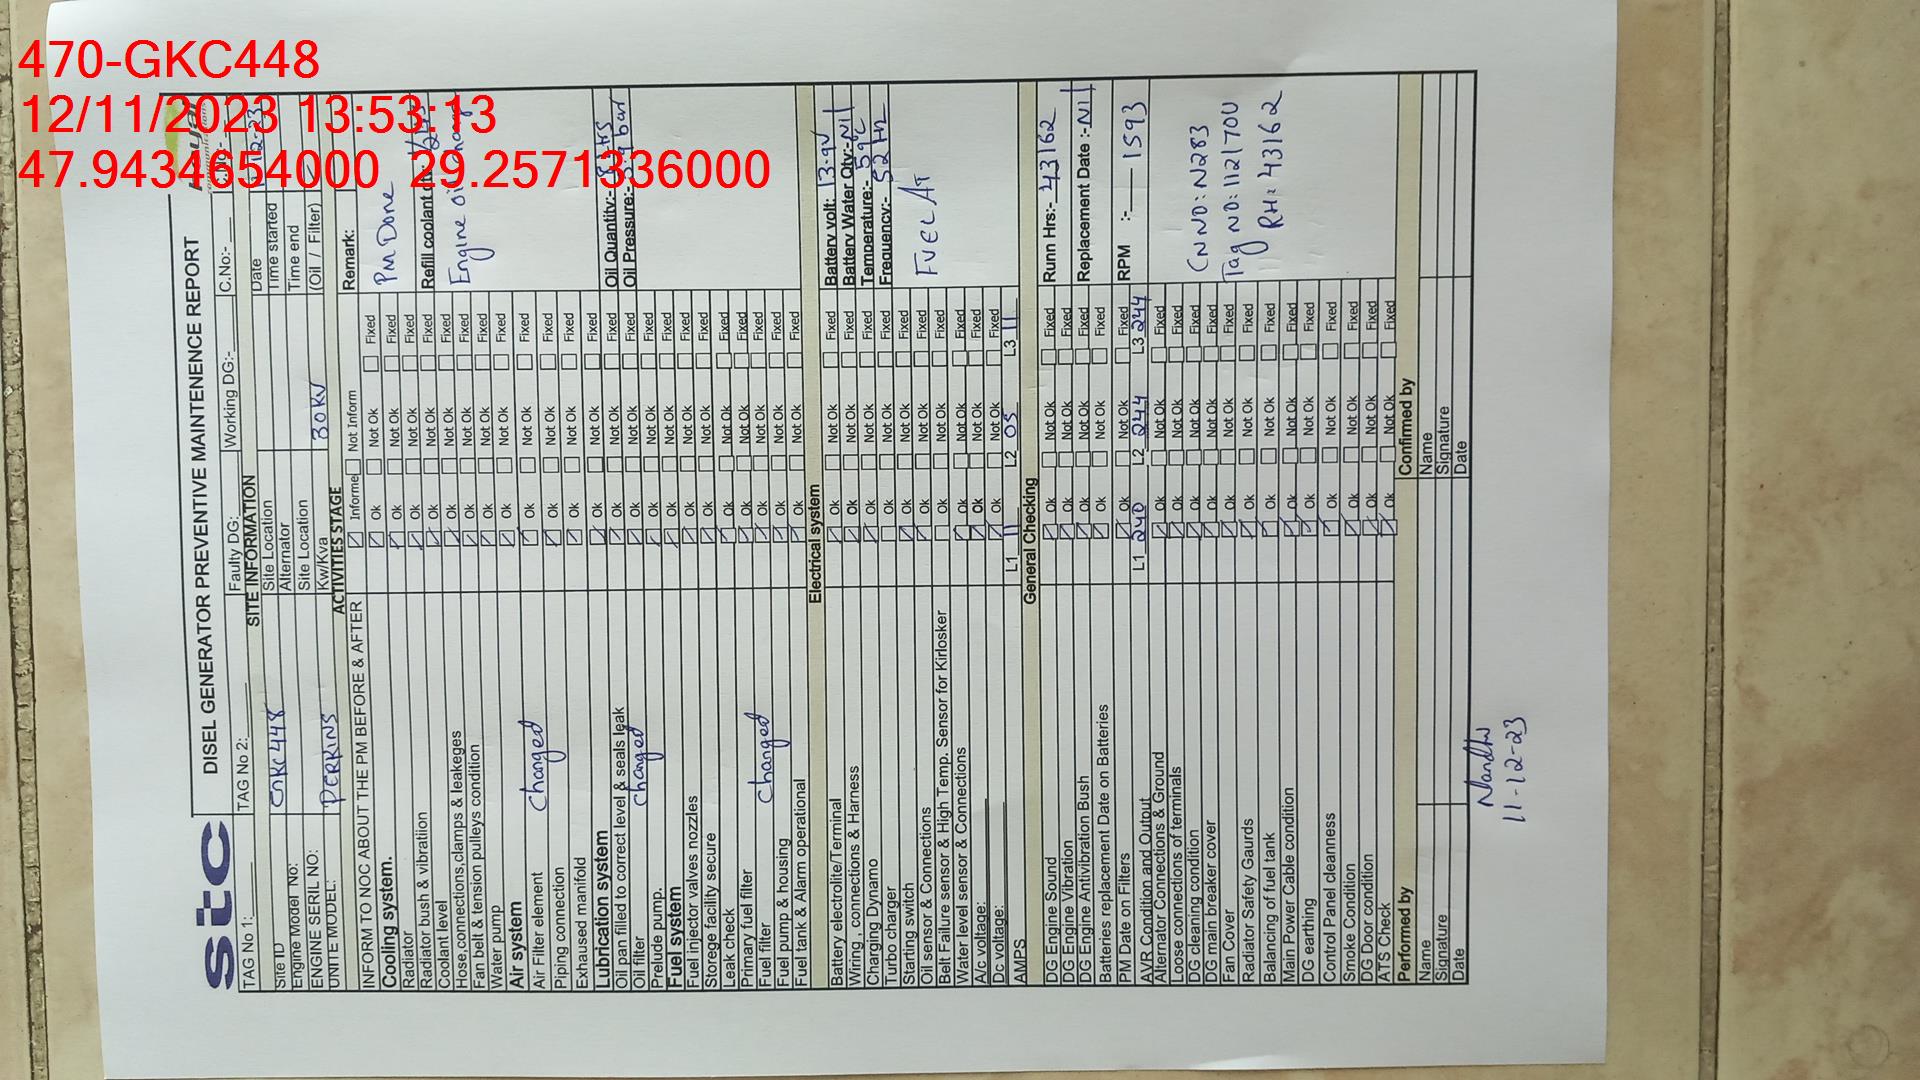 470-GKC448
12/11/2023 13:53:13
47.9434654000 29.2571336000
stc
DISEL GENERATOR PREVENTIVE MAINTENENCE REPORT
TAG No 1: TAG No 2: Faulty DG: Working DG:- C.No:- C.No:-
SITE INFORMATION Date 12-23
Site ID GKC 448 Site Location Time started
Engine Model No: Alternator
ENGINE SERIL NO: Site Location Time end
UNITE MODEL: PERKINS Kw/Kva 30KV (Oil / Filter)
ACTIVITIES STAGE Remark:
INFORM TO NOC ABOUT THE PM BEFORE & AFTER Informe Not Inform
Cooling system. Ok Not Ok Fixed PM Done
Radiator Ok Not Ok Fixed
Radiator bush & vibratiion Ok Not Ok Fixed Refill coolant
Coolant level Ok Not Ok Fixed
Hose,connections,clamps & leakeges Ok Not Ok Fixed Engine oil change
Fan belt & tension pulleys condition Ok Not Ok Fixed
Water pump Ok Not Ok Fixed
Air system
Air Filter element Changed Ok Not Ok Fixed
Piping connection Ok Not Ok Fixed
Exhaused manifold Ok Not Ok Fixed
Lubrication system Ok Not Ok Fixed Oil Quantity:-
Oil pan filled to correct level & seals leak Ok Not Ok Fixed Oil Pressure:- bar
Oil filter Changed Ok Not Ok Fixed
Prelude pump. Ok Not Ok Fixed
Fuel system Ok Not Ok Fixed
Fuel injector valves nozzles Ok Not Ok Fixed
Storege facility secure Ok Not Ok Fixed
Leak check Ok Not Ok Fixed
Primary fuel filter Ok Not Ok Fixed
Fuel filter Changed Ok Not Ok Fixed
Fuel pump & housing Ok Not Ok Fixed
Fuel tank & Alarm operational Ok Not Ok Fixed
Electrical system
Battery electrolite/Terminal Ok Not Ok Fixed Battery volt: 13.9V
Wiring , connections & Harness Ok Not Ok Fixed Battery Water Qty:-Nil
Charging Dynamo Ok Not Ok Fixed Temperature:- 59c
Turbo charger Ok Not Ok Fixed Frequency:- 52Hz
Starting switch Ok Not Ok Fixed
Oil sensor & Connections Ok Not Ok Fixed FUEL AT
Belt Failure sensor & High Temp. Sensor for Kirlosker Ok Not Ok Fixed
Water level sensor & Connections Ok Not Ok Fixed
A/c voltage: Ok Not Ok Fixed
Dc voltage: Ok Not Ok Fixed
AMPS L1 11 L2 05 L3 11
General Checking
DG Engine Sound Ok Not Ok Fixed Runn Hrs:- 43162
DG Engine Vibration Ok Not Ok Fixed
DG Engine Antivibration Bush Ok Not Ok Fixed Replacement Date :-Nil
Batteries replacement Date on Batteries Ok Not Ok Fixed
PM Date on Filters Ok Not Ok Fixed RPM :- 1593
AVR Condition and Output L1 240 L2 244 L3 244
Alternator Connections & Ground Ok Not Ok Fixed
Loose conneections of terminals Ok Not Ok Fixed
DG cleaning condition Ok Not Ok Fixed CNNO: N283
DG main breaker cover Ok Not Ok Fixed
Fan Cover Ok Not Ok Fixed Tag NO: 11217OU
Radiator Safety Gaurds Ok Not Ok Fixed
Balancing of fuel tank Ok Not Ok Fixed RH: 43162
Main Power Cable condition Ok Not Ok Fixed
DG earthing Ok Not Ok Fixed
Control Panel cleanness Ok Not Ok Fixed
Smoke Condition Ok Not Ok Fixed
DG Door condition Ok Not Ok Fixed
ATS Check Ok Not Ok Fixed
Performed by Confirmed by
Name Name
Signature Signature
Date Date
11-12-23